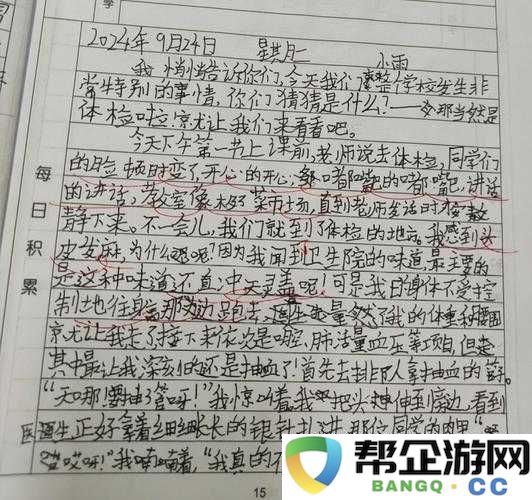 学
2024年9月24日 星期二 小雨
我悄悄告诉你们,今天我们整学校发生非
常特别的事情,你们猜猜是什么?——那当然是
体检啦!就让我们来看看吧。
今天下午第一节上课前,老师说去体检,同学们
的脸顿时变了,开心的开心,嘟嘴的嘟嘴,讲话
的讲话,教室像极了菜市场,直到老师发话时才
静下来。不一会儿,我们就到了体检的地方。我感到头
皮发麻,为什么呢?因为我闻到卫生院的味道,最主要的
是这种味道还直冲天灵盖呢!可是我的身体不受控
制地往那边跑去,医生量了我的体重和腰围
就让我走了接下来依次是肺活量血压等项目,但是
其中最让我深刻的还是抽血了!首先去排队拿抽血的
“天哪要抽了管呀!”我惊叹着,我把头伸到旁边,看到
医生正好拿着细细长长的银针扎进那位同学的肉里“
哎哟呀!”我喃喃着,“我真的不
每日积累
15
帮企游网
BANGQ·CC